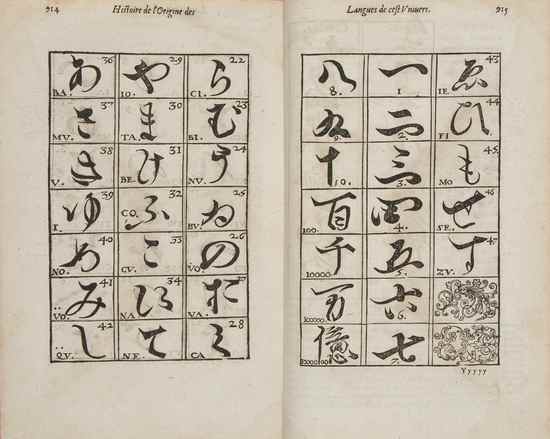 914 Histoire de l'Origine des
あ 36 BA. や 29 IO. ら 22 CI.
さ 37 MV. ま 30 TA. む 23 BI.
き V. け 31 BE. う 24 NV.
ゆ 39 I. ふ 32 CO. ゐ 25 BV.
め 40 NO. こ 33 CV. の 26 VO.
み 41 VO. え 34 NA. お VA.
し 42 QV. て NE. く 28 CA
Langues de cest Vniuers. 915
八 8. 一 1 ゑ 43 IE.
九 9. 二 2. ひ 44 FI
十 10. 三 3. も 45. MO
百 100. 四 4. せ 46 SE.
千 10000 五 5. す 47 ZV.
万 六 6.
億 七 7.
Yyyyy